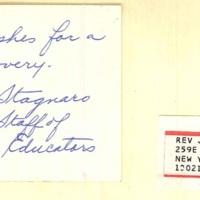 shes for a
overy.
Stagnaro
Staff of
Educators
REV J
259E
NEW Y
10021